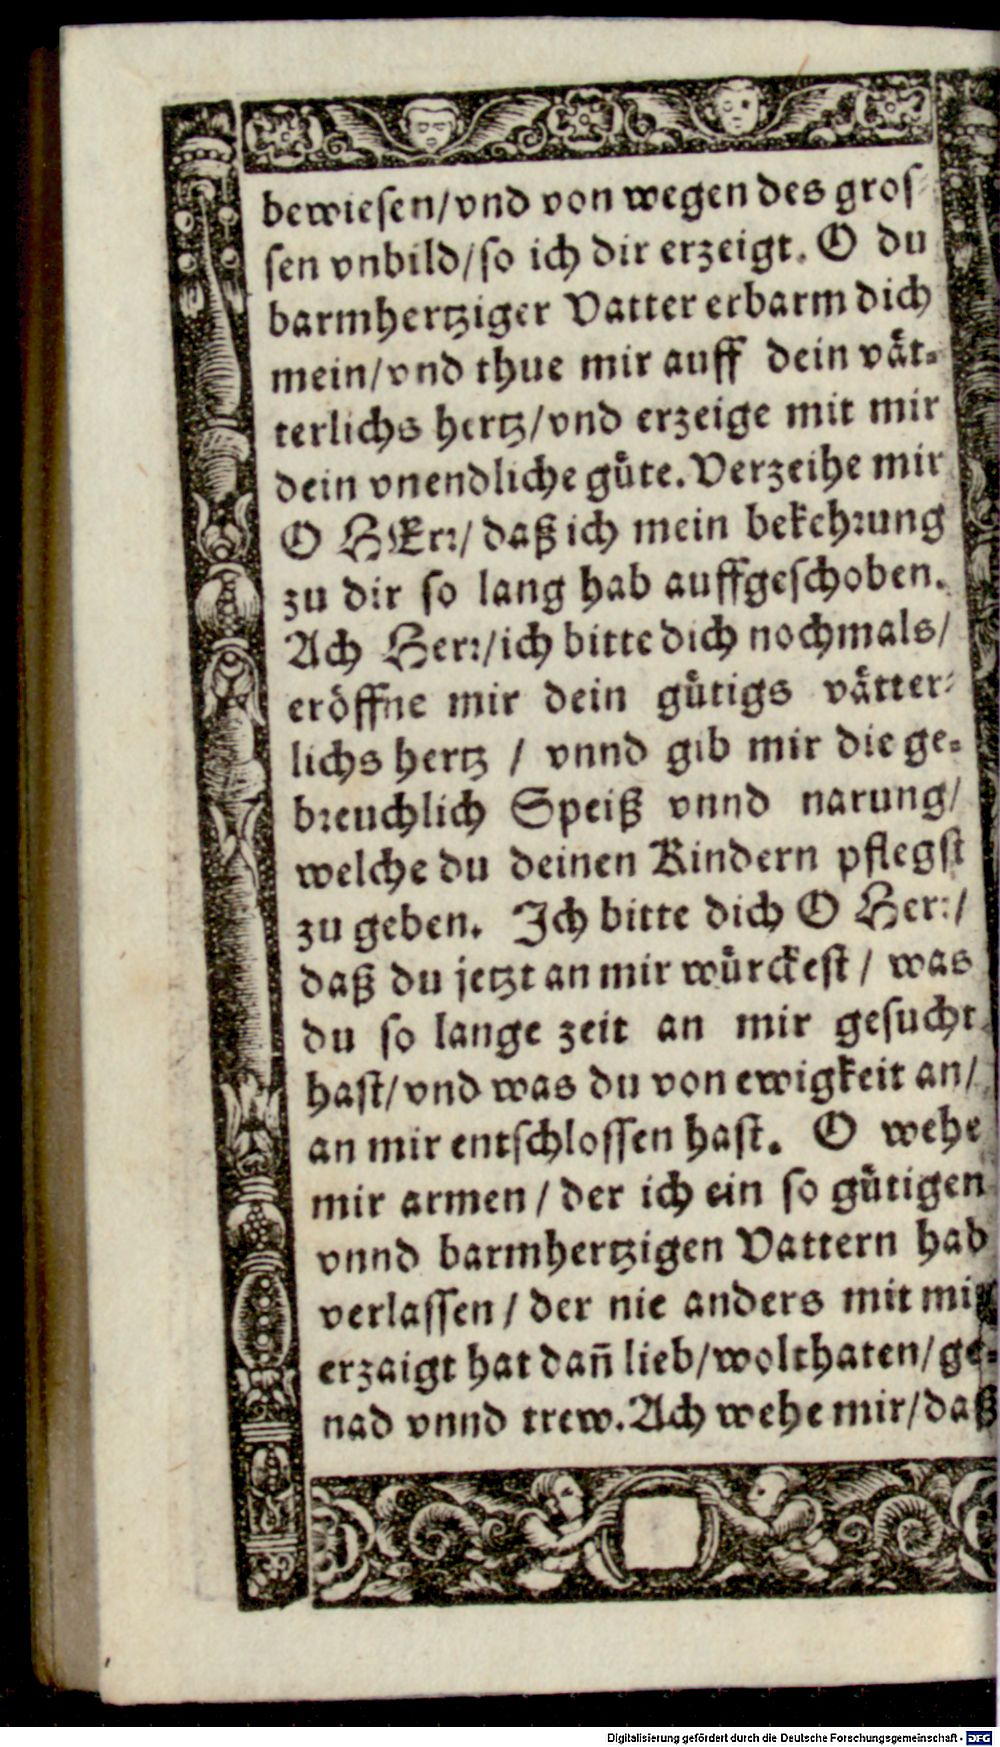 bewiesen/vnd von wegen des gros-
sen vnbild/so ich dir erzeigt. O du
barmhertziger Vatter erbarm dich
mein/vnd thue mir auff dein våt-
terlichs hertz/vnd erzeige mit mir
dein vnendliche gůte. Verzeihe mir
O HErr/ daß ich mein bekehrung
zu dir so lang hab auffgeschoben.
Ach Herr/ich bitte dich nochmals/
eröffne mir dein gůtigs våtter-
lichs hertz / vnnd gib mir die ge-
breuchlich Speiß vnnd narung/
welche du deinen Kindern pflegst
zu geben. Ich bitte dich O Herr/
daß du jetzt an mir wůrckest / was
du so lange zeit an mir gesucht
hast/vnd was du von ewigkeit an/
an mir entschlossen hast. O wehe
mir armen / der ich ein so gůtigen
vnnd barmhertzigen Vattern hab
verlassen / der nie anders mit mir
erzaigt hat dañ lieb/wolthaten/ge-
nad vnnd trew. Ach wehe mir/daß
Digitalisierung gefördert durch die Deutsche Forschungsgemeinschaft - DFG